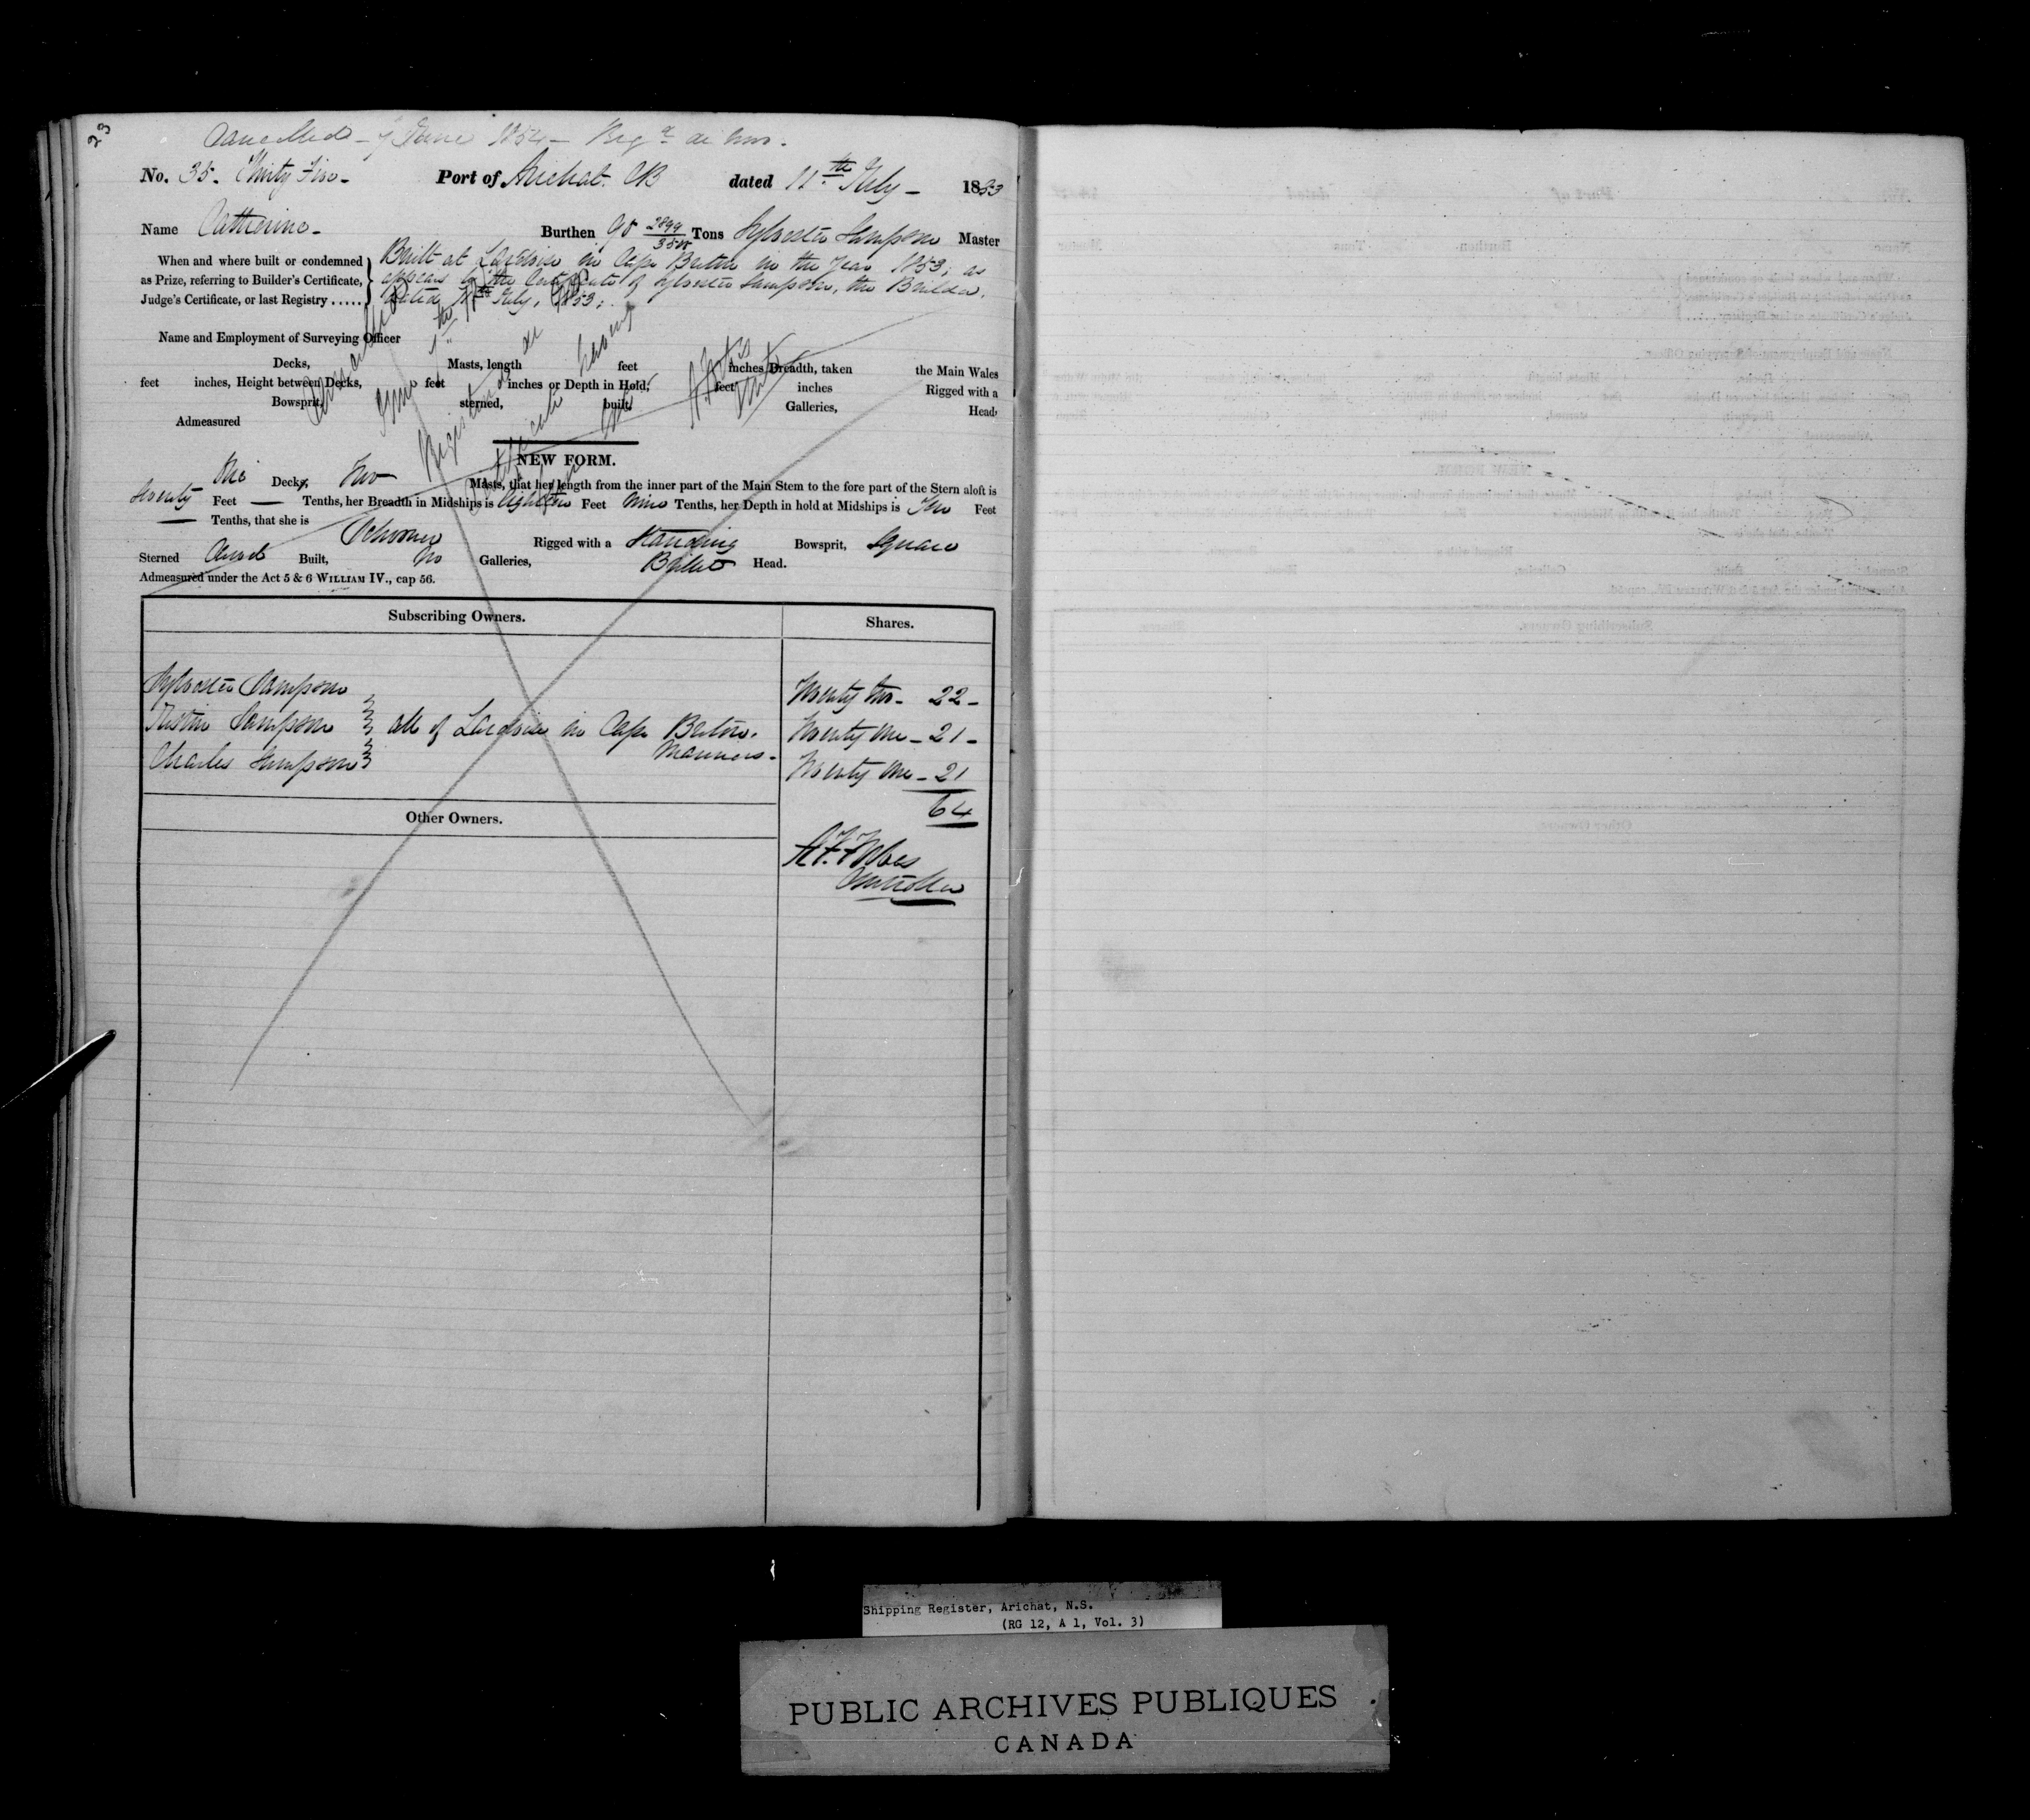 23
Cancelled - 7 June 1854 - Reg.d de novo.
No. 35. Thirty Five - Port of Arichat. CB dated 11th July - 1853
Name Catherine - Burthen 98 2899/3500 Tons Sylvester Sampson Master
When and where built or condemned as Prize, referring to Builder's Certificate, Judge's Certificate, or last Registry .....
Built at Lardoise in Cape Breton in the Year 1853; as
appears by the Certificate of Sylvester Sampson, the Builder,
dated 11th July, 1853;
Name and Employment of Surveying Officer
Decks, Masts, length feet inches Breadth, taken the Main Wales
feet inches, Height between Decks, feet inches or Depth in Hold, feet inches Rigged with a
Bowsprit, sterned, built, Galleries, Head,
Admeasured
Cancelled
7th
Registered de
Certificate having
NEW FORM.
One Decks, Two Masts, that her length from the inner part of the Main Stem to the fore part of the Stern aloft is
Seventy Feet — Tenths, her Breadth in Midships is Eighteen Feet Nine Tenths, her Depth in hold at Midships is Feet
— Tenths, that she is Schooner Rigged with a Standing Bowsprit, Square
Sterned Carvel Built, No Galleries, Billet Head.
Admeasured under the Act 5 & 6 WILLIAM IV., cap 56.
Subscribing Owners. Shares.
Sylvester Sampson Twenty two - 22 -
Sampson all of Lardoise in Cape Breton. Twenty one - 21 -
Charles Sampson Mariners - Twenty one - 21
64
Other Owners.
Controller
Shipping Register, Arichat, N.S.
(RG 12, A 1, Vol. 3)
PUBLIC ARCHIVES PUBLIQUES
CANADA